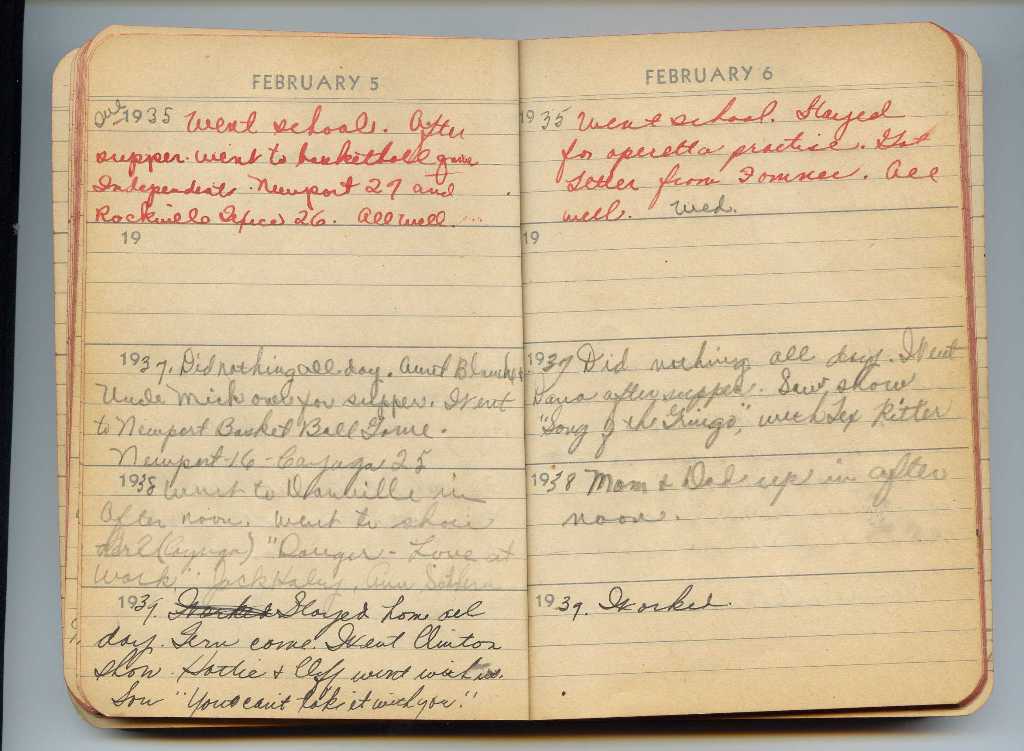 FEBRUARY 5
Tue 1935 Went school. After
supper went to basketball game
Independents. Newport 27 and
Rockville 26. All well.
19
1937. Did nothing all day. Aunt Blanche &
Uncle Mick over for supper. Went
to Newport Basket Ball Game.
Newport-16-Cayuga 25
1938 Went to Danville in
after noon. Went to show
(Cayuga) "Danger - Love at
Work". Jack Haley, Ann Sothern
1939. Worked Stayed home all
day. Fern come. Went Clinton
show. Hattie & Cliff went with us.
Saw "You can't take it with you."
FEBRUARY 6
1935 Went school. Stayed
for operetta practice. Got
letter from. All
well. Wed.
19
1937 Did nothing all day. Went
Dana after supper. Saw show
"Song of the Gringo", with Tex Ritter
1938 Mom & Dad up in after
noon.
1939. Worked.